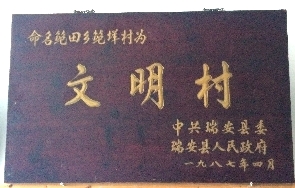 命名鲍田乡鲍垟村为
文明村
中共瑞安县委
瑞安县人民政府
一九八七年四月